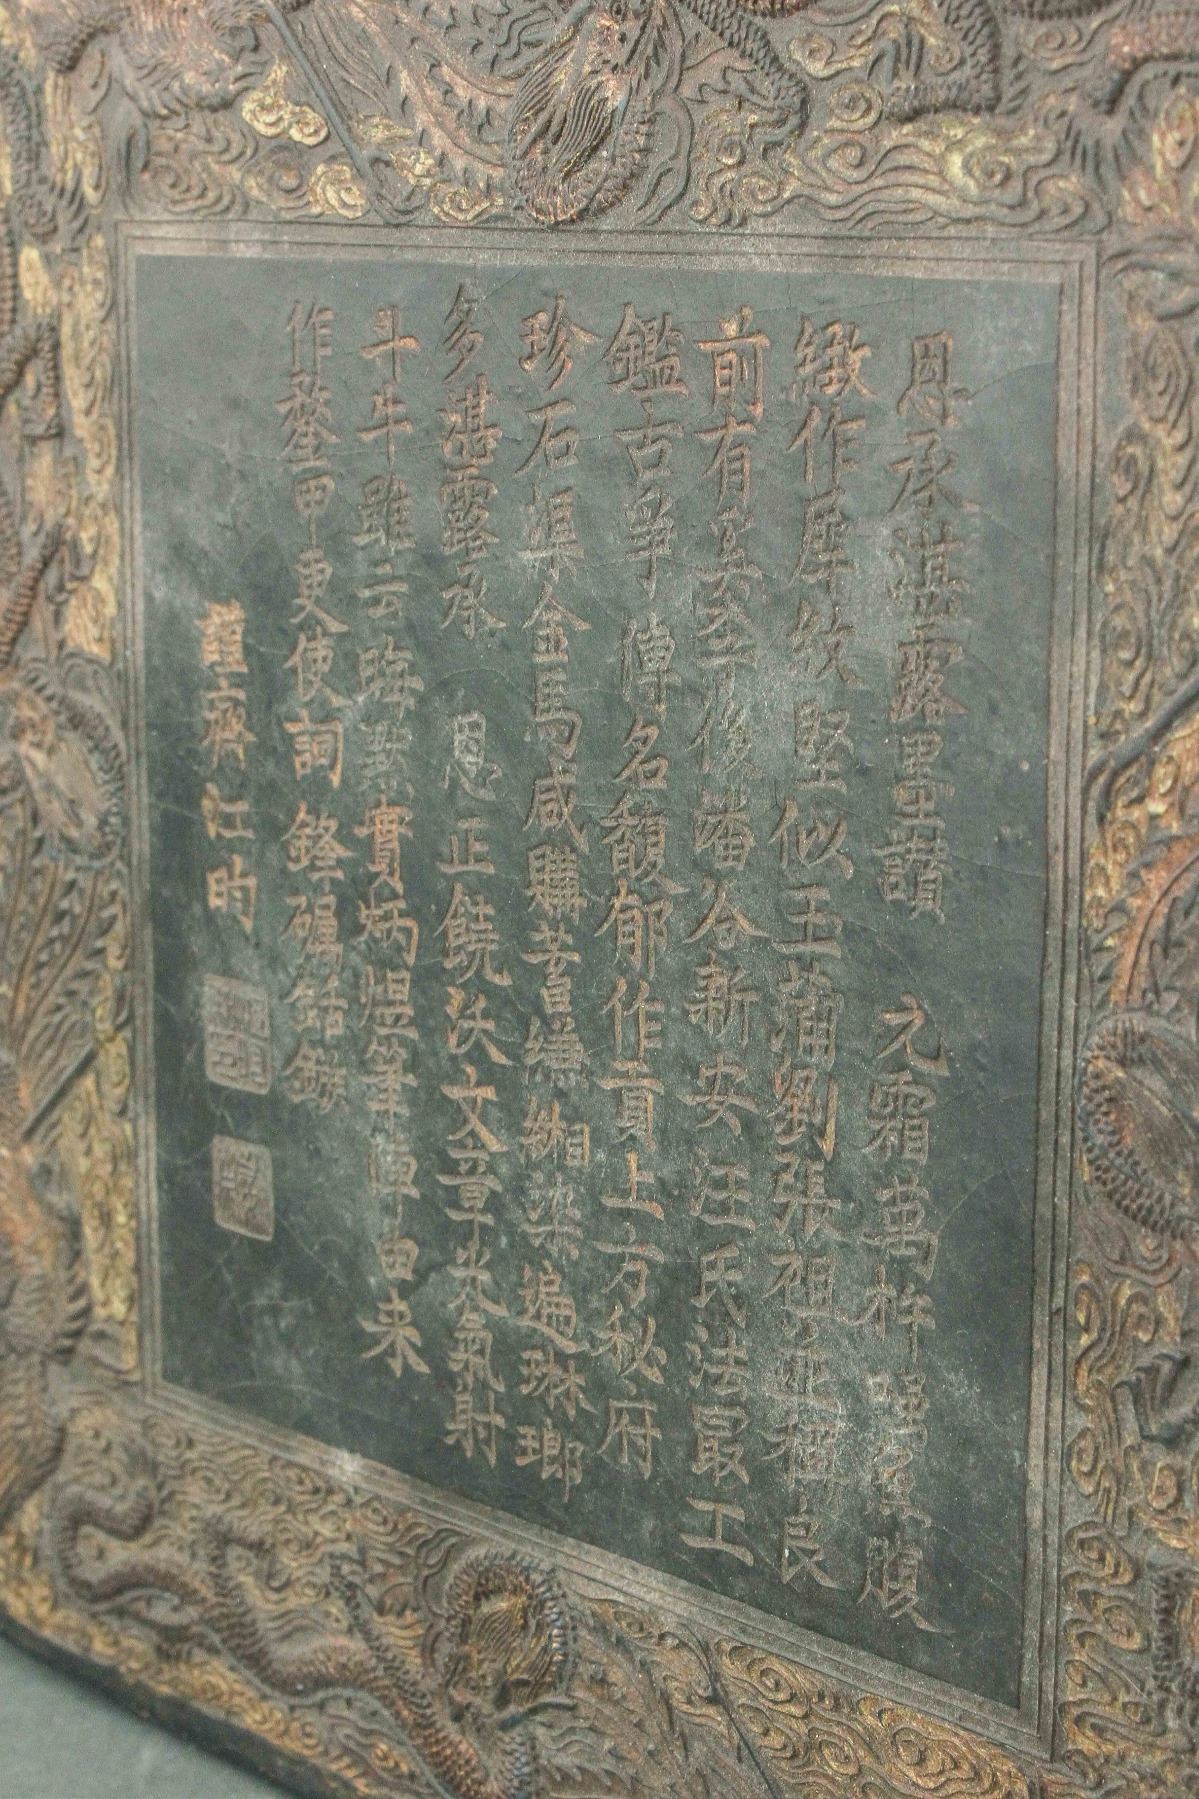 恩承湛露墨讚　元霜萬杵驊堅腹
緻作犀紋堅似玉蒲劉張祖並稱良
前有奚至後潘谷新安汪氏法最工
鑑古爭傳名馥郁作貢上方秘府
珍石渠金馬咸購蓄縑緗染遍琳瑯
多湛露承　恩正饒沃文章光氣射
斗牛雖云晦默實炳煜筆陣由來
作鍪甲更使詞鋒礪銛鏃
蘿齋江昀